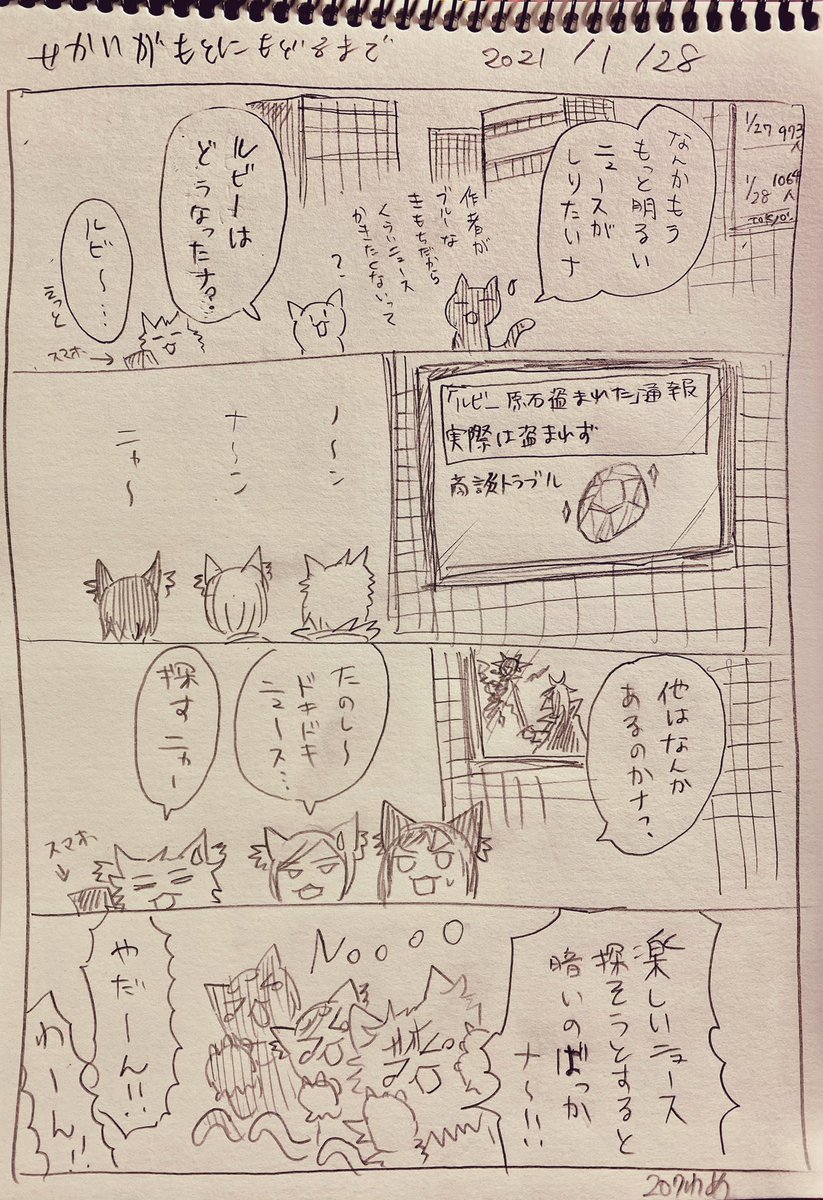 せかいがもとにもどるまで
2021/1/28
1/27 973人
1/28 1064人
なんかもう
もっと明るい
ニュースが
しりたいナ
作者が
ブルーな
きもちだから
くらいニュース
かきたくないって
?
ルビーは
どうなったナ?
ルビ〜…
えっと
スマホ→
「ルビー原石盗まれた」通報
実際は盗まれず
商談トラブル
ノ〜ン
ナ〜ン
ニャ〜
他はなんか
あるのかナ?
たのし〜
ドキドキ
ニュース…
探すニャー
スマホ
↓
楽しいニュース
探そうとすると
暗いのばっか
ナ〜!!
Noooo
やだーん!!
わーん!!